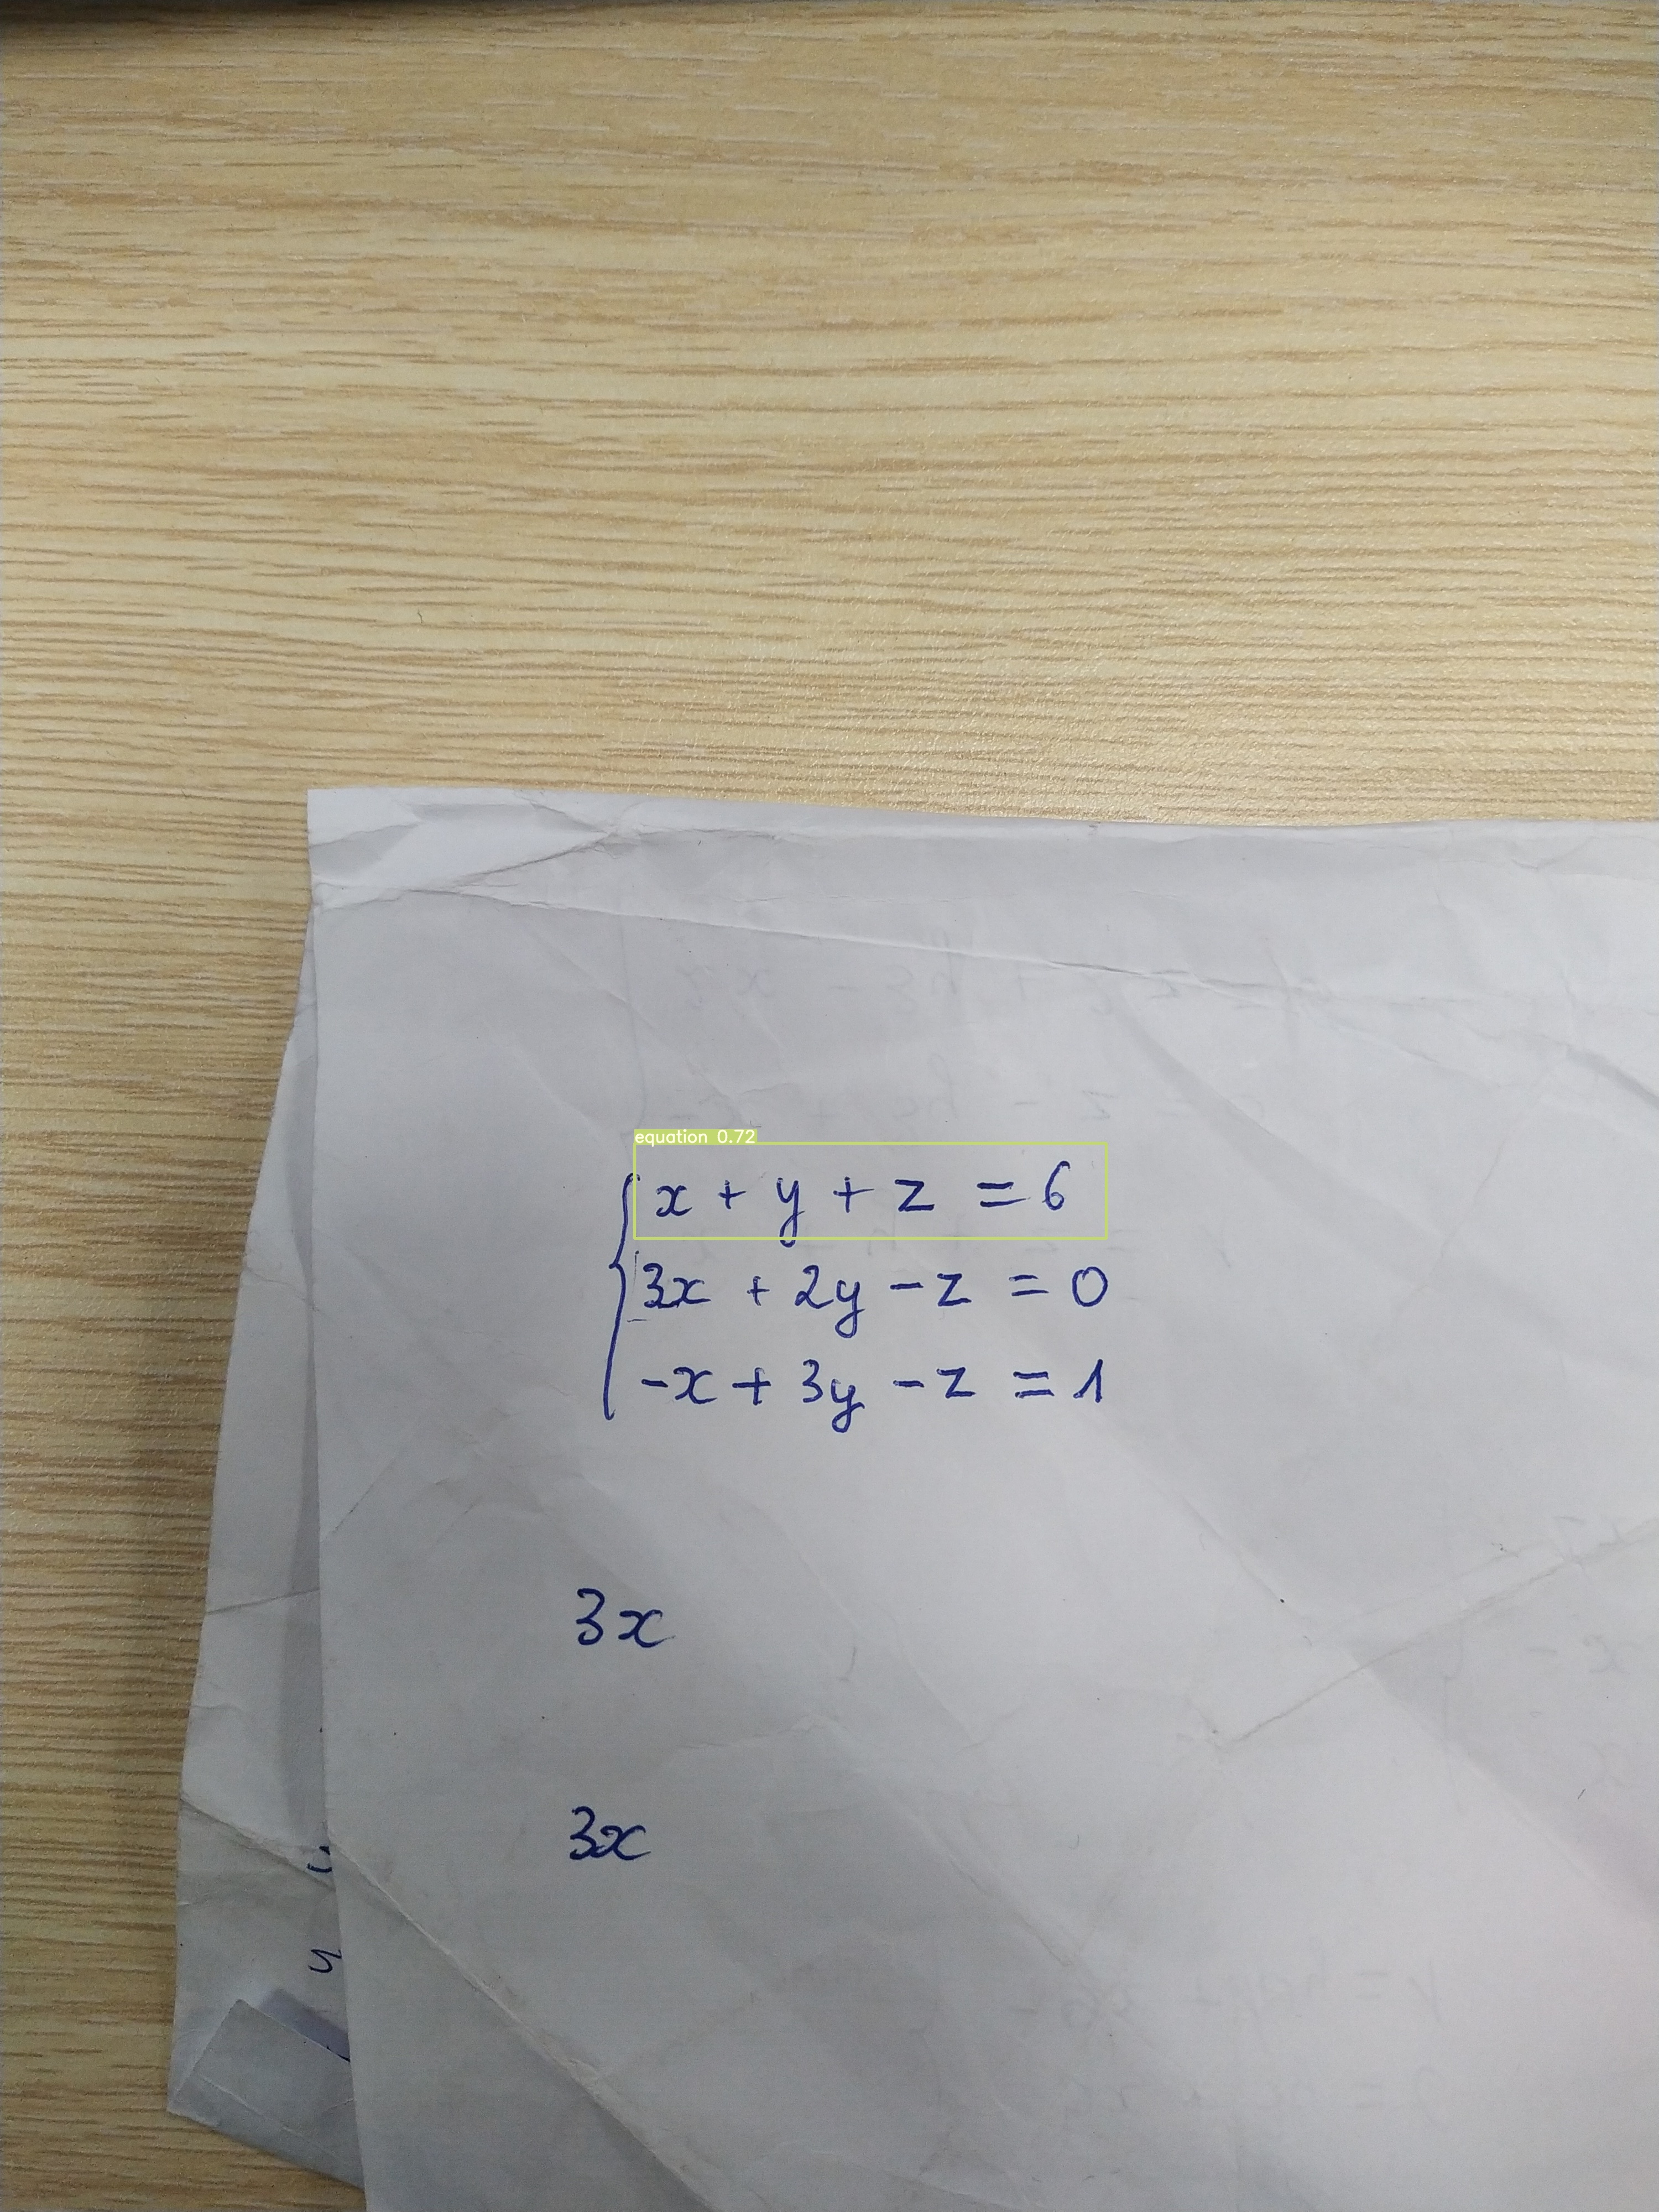 equation 0.72
x + y + z = 6
3x + 2y - z = 0
-x + 3y - z = 1
3x
3x